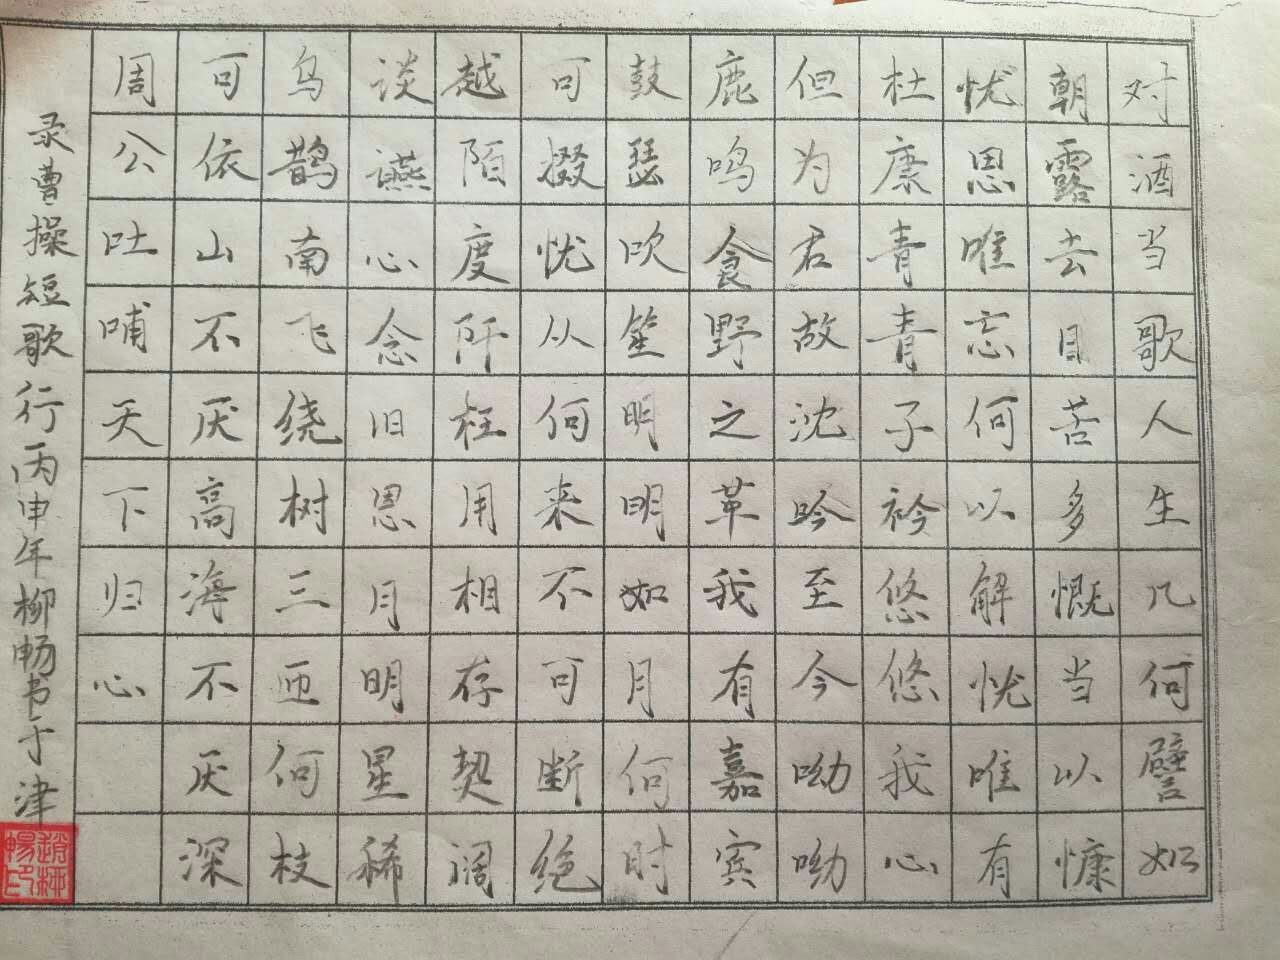 对酒当歌人生几何譬如
朝露去日苦多慨当以慷
忧思唯忘何以解忧唯有
杜康青青子衿悠悠我心
但为君故沈吟至今呦呦
鹿鸣食野之苹我有嘉宾
鼓瑟吹笙明明如月何时
可掇忧从何来不可断绝
越陌度阡枉用相存契阔
谈䜩心念旧恩月明星稀
乌鹊南飞绕树三匝何枝
可依山不厌高海不厌深
周公吐哺天下归心
录曹操短歌行丙申年柳畅书于津
趙柳暢印